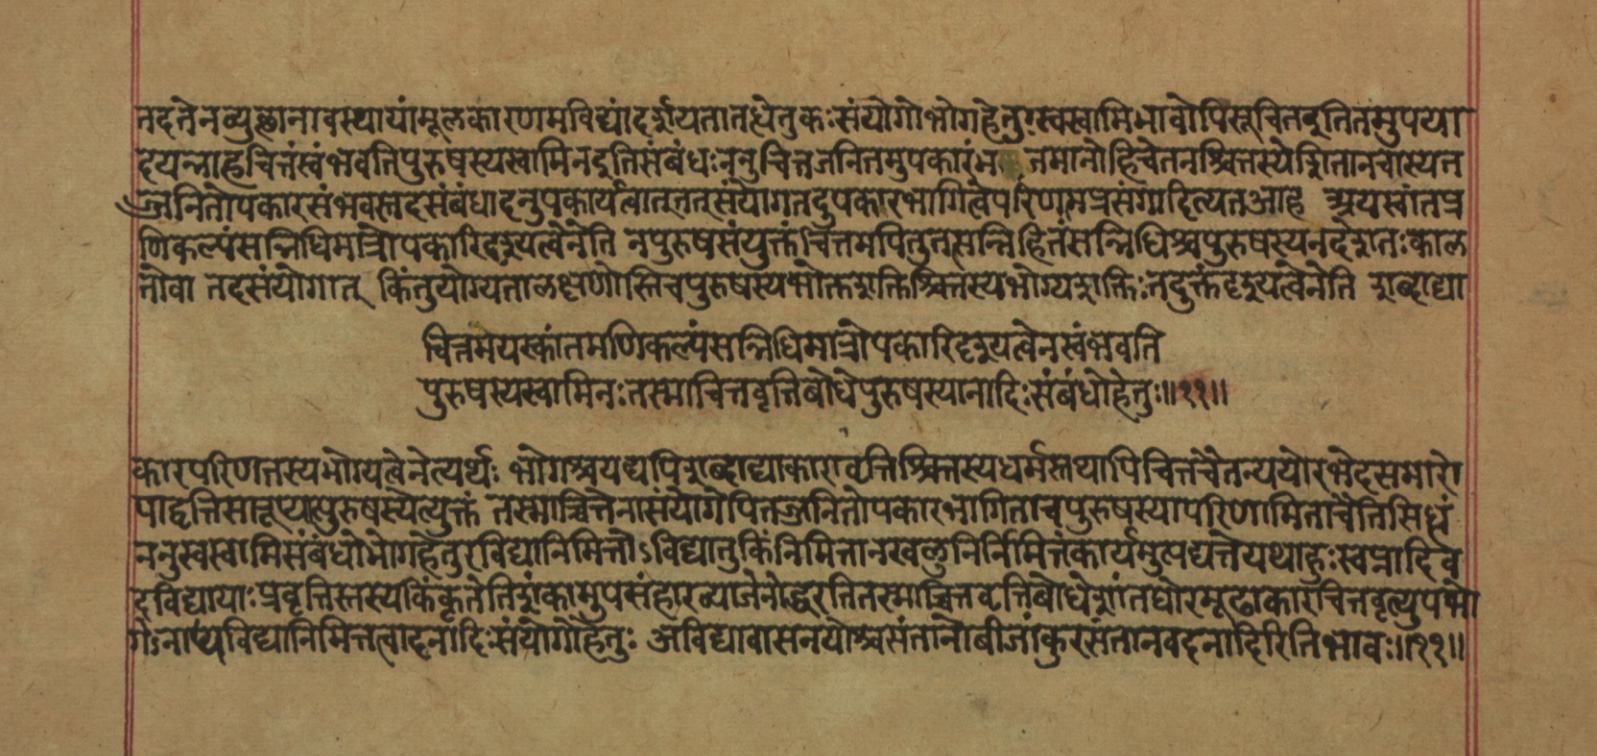 तदंतेनव्युछानावस्थायांमूलकारणमविद्यांदर्शयतातत्धेतुकःसंयोगोभोगहेतुःस्वस्वामिभावोपिसूचितइतितमुपया
दयन्नाहचित्तंस्वंभवतिपुरुषस्यस्वामिनइतिसंबंधःननुचित्तजनितमुपकारंभ जमानोहिचेतनश्चित्तस्येशितानचास्यत
ज्जनितोपकारसंभवस्तदसंबंधादनुपकार्यत्वात्तत्संयोगतदुपकारभागित्वेपरिणामप्रसंगादित्यतआह अयस्कांतम
णिकल्पंसन्निधिमात्रोपकारिदृश्यत्वेनेति नपुरुषसंयुक्तंचित्तमपितुतत्सन्निहितंसन्निधिश्चपुरुषस्यनदेशतःकाल
तोवा तदसंयोगात् किंतुयोग्यतालक्षणोस्तिचपुरुषस्यभोक्तृशक्तिश्चित्तस्यभोग्यशक्तिःतदुक्तंदृश्यत्वेनेति शब्दाद्या
चित्तमयस्कांतमणिकल्पंसन्निधिमात्रोपकारिदृश्यत्वेनस्वंभवति
पुरुषस्यस्वामिनःतस्माचित्तवृत्तिबोधेपुरुषस्यानादिःसंबंधोहेतुः॥११॥
कारपरिणतस्यभोग्यत्वेनेत्यर्थः भोगश्चयद्यपिशब्दाद्याकारावृत्तिश्चित्तस्यधर्मस्तथापिचित्तचैतन्ययोरभेदसमारो
पाद्वृत्तिसारूप्यात्पुरुषस्येत्युक्तं तस्माच्चित्तेनासंयोगेपितज्जनितोपकारभागिताचपुरुषस्यापरिणामिताचेतिसिध्दं
ननुस्वस्वामिसंबंधोभोगहेतुरविद्यानिमित्तोऽविद्यातुकिंनिमित्तानखलुनिर्निमित्तंकार्यमुत्पद्यतेयथाहुःस्वप्नादिव
दविद्यायाःप्रवृत्तिस्तस्यकिंकृतेतिशंकामुपसंहारव्याजेनोद्धरतितस्माच्चित्तवृत्तिबोधेशांतघोरमूढाकारचित्तवृत्युपभो
गेऽनाद्यविद्यानिमित्तत्वादनादिःसंयोगोहेतुः अविद्यावासनयोश्चसंतानोबीजांकुरसंतानवदनादिरितिभावः॥११॥